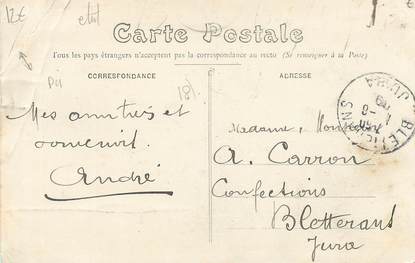 12€
Carte Postale
Tous les pays étrangers n'acceptent pas la correspondance au recto (Se renseigner à la Poste)
CORRESPONDANCE
ADRESSE
Mes amitiés et
souvenir.
André
Madame, Monsieur
A. Carron
Confections
Bletterans
Jura
BLETTERANS
JURA